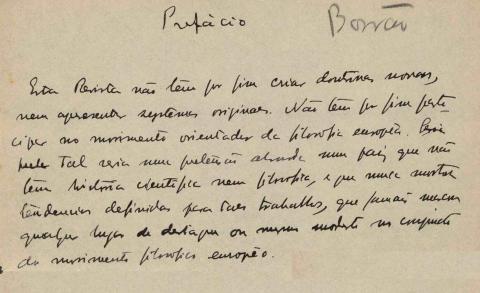 Prefácio
Borrão
Esta Revista não têm por fim criar doutrinas novas,
nem apresentar systemas originaes. Não têm por fim parti
cipar no movimento orientador da filosofia européa.
tal seria uma pretenção absurda num paiz que não
têm historia scientifica nem filosofica, e que nunca mostrou
tendencias definidas para taes trabalhos, que jamais marcou
qualquer lugar de destaque ou mesmo modesto no conjuncto
do movimento filosofico europêo.